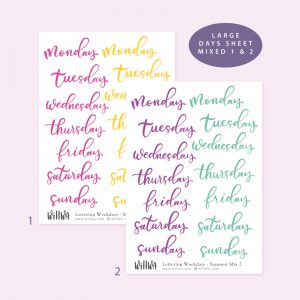 LARGE
DAYS SHEET
MIXED 1 & 2
monday monday
tuesday tuesday
wednesday
thursday
friday
saturday
sunday
willwa
Lettering Weekdays - S
1
monday monday
tuesday tuesday
wednesday wednesday
thursday thursday
friday friday
saturday saturday
sunday sunday
willwa
Lettering Weekdays - Summer Mix 2
2